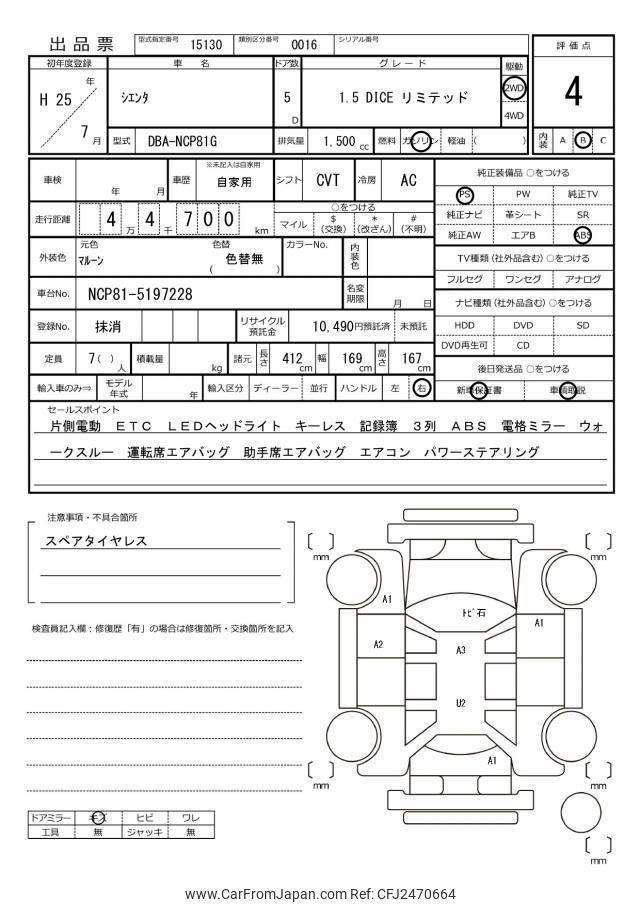 出品票 型式指定番号 15130 類別区分番号 0016 シリアル番号
評価点
4
内装 A B C
初年度登録 車名 ドア数 グレード 駆動
H 25 年 7 月 シエンタ 5 D 1.5 DICE リミテッド 2WD 4WD
型式 DBA-NCP81G 排気量 1,500 cc 燃料 ガソリン 軽油 ( )
車検 年 月 車歴 ※未記入は自家用 自家用 シフト CVT 冷房 AC
走行距離 4 万 4 千 7 0 0 km
○をつける
マイル $ (交換) * (改ざん) # (不明)
外装色 元色 マルーン 色替 ( 色替無 ) カラーNo. 内装色
車台No. NCP81-5197228 名変期限 月 日
登録No. 抹消 リサイクル預託金 10,490円預託済 未預託
定員 7( ) 人 積載量 kg 諸元 長さ 412 cm 幅 169 cm 高さ 167 cm
輸入車のみ⇒ モデル年式 年 輸入区分 ディーラー 並行 ハンドル 左 右
純正装備品 ○をつける
PS PW 純正TV
純正ナビ 革シート SR
純正AW エアB ABS
TV種類(社外品含む) ○をつける
フルセグ ワンセグ アナログ
ナビ種類(社外品含む) ○をつける
HDD DVD SD
DVD再生可 CD
後日発送品 ○をつける
新車保証書 車輌取説
セールスポイント
片側電動 ETC LEDヘッドライト キーレス 記録簿 3列 ABS 電格ミラー ウォ
ークスルー 運転席エアバッグ 助手席エアバッグ エアコン パワーステアリング
注意事項・不具合箇所
スペアタイヤレス
検査員記入欄：修復歴「有」の場合は修復箇所・交換箇所を記入
ドアミラー キズ ヒビ ワレ
工具 無 ジャッキ 無
mm
mm
A1
トビ石
A1
A2
A3
U2
A1
mm
mm
mm
www.CarFromJapan.com Ref: CFJ2470664